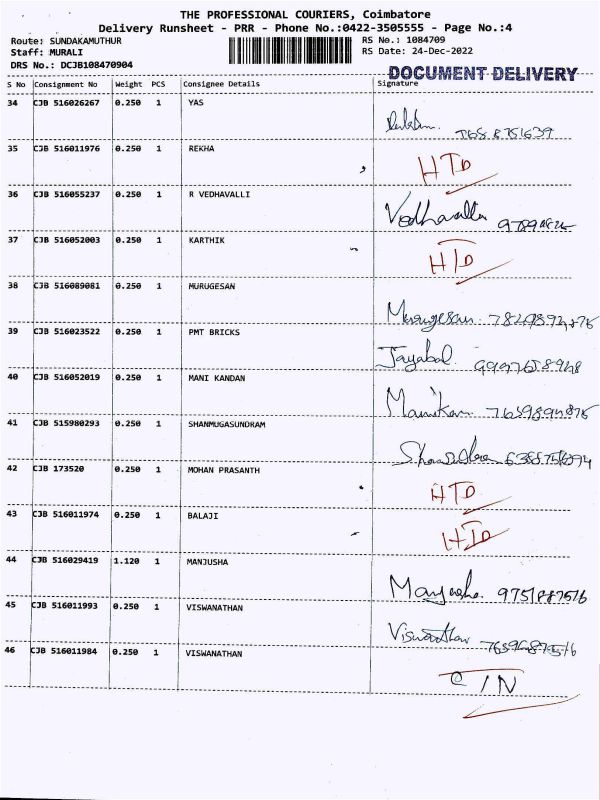 THE PROFESSIONAL COURIERS, Coimbatore
Delivery Runsheet - PRR - Phone No.:0422-3505555 - Page No.:4
Route: SUNDAKAMUTHUR RS No.: 1084709
Staff: MURALI RS Date: 24-Dec-2022
DRS No.: DCJB108470904
DOCUMENT DELIVERY
S No Consignment No Weight PCS Consignee Details Signature
34 CJB 516026267 0.250 1 YAS
35 CJB 516011976 0.250 1 REKHA HTD
36 CJB 516055237 0.250 1 R VEDHAVALLI Vedhavalli
37 CJB 516052003 0.250 1 KARTHIK HTD
38 CJB 516089081 0.250 1 MURUGESAN Murugesan
39 CJB 516023522 0.250 1 PMT BRICKS Jayabal
40 CJB 516052019 0.250 1 MANI KANDAN
41 CJB 515980293 0.250 1 SHANMUGASUNDRAM
42 CJB 173520 0.250 1 MOHAN PRASANTH HTD
43 CJB 516011974 0.250 1 BALAJI HTD
44 CJB 516029419 1.120 1 MANJUSHA Manjusha 9751887516
45 CJB 516011993 0.250 1 VISWANATHAN Viswanathan
46 CJB 516011984 0.250 1 VISWANATHAN